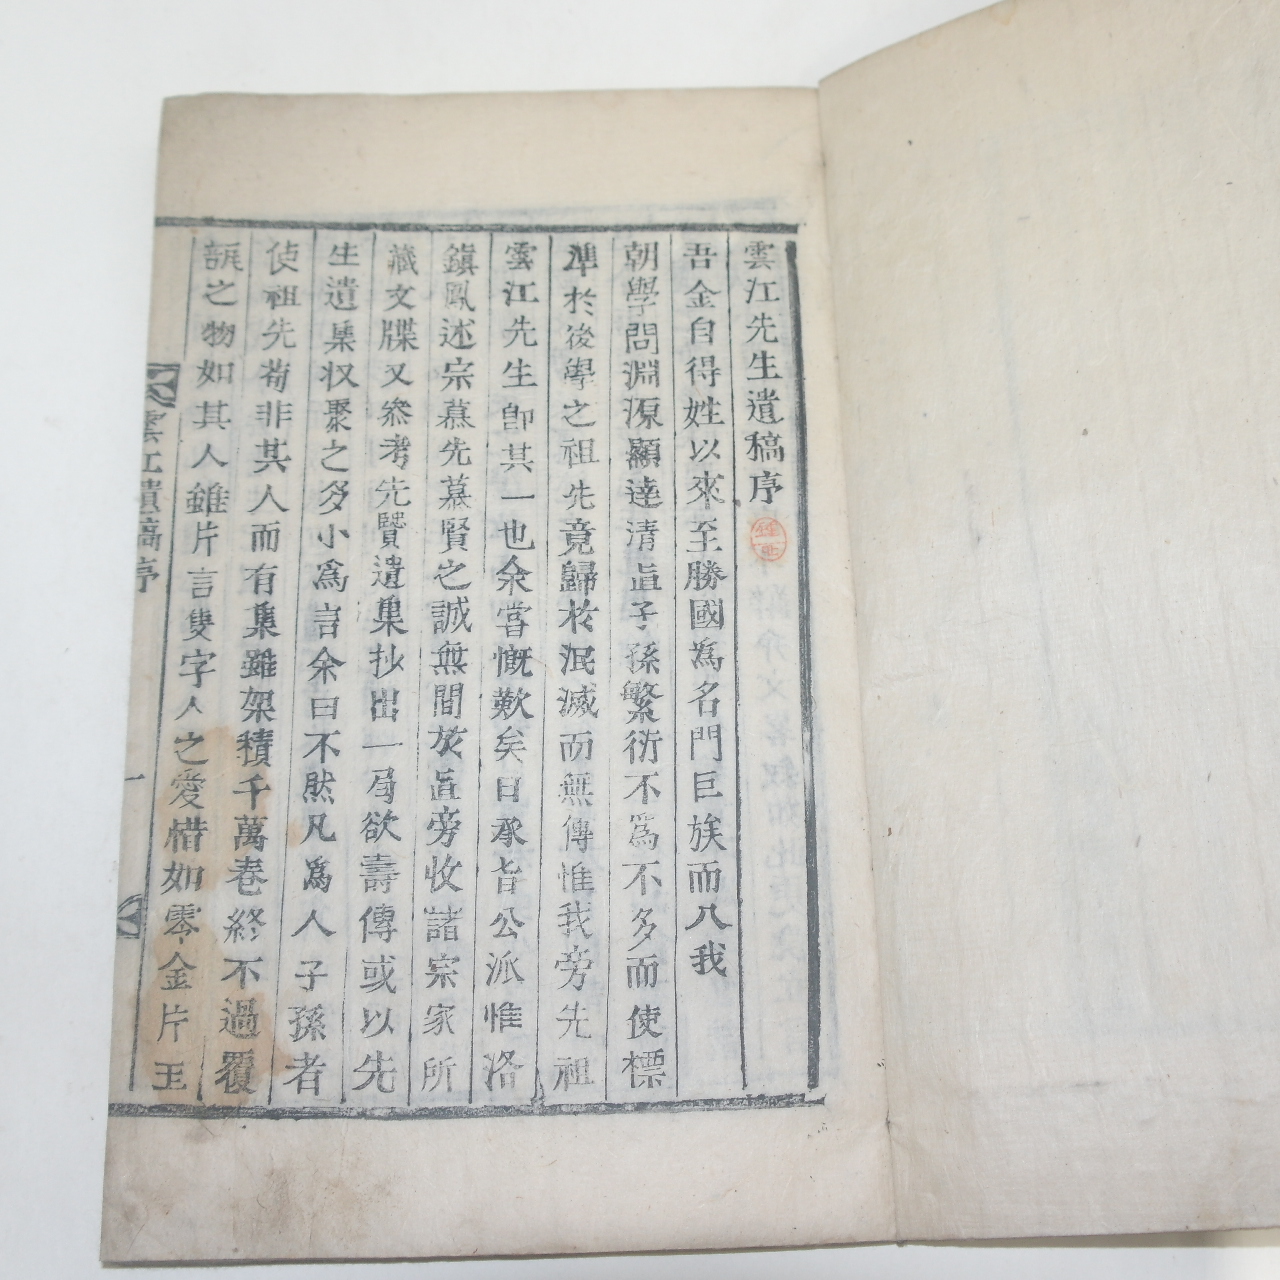 雲江先生遺稿序
吾金自得姓以來至勝國爲名門巨族而入我
朝學問淵源顯達清直子孫繁衍不爲不多而使標
準於後學之祖先竟歸於泯滅而無傳惟我旁先祖
雲江先生卽其一也余嘗慨歎矣日承旨公派惟洛
鎭鳳述宗慕先慕賢之誠無間於直旁收諸宗家所
藏文牒又叅考先賢遺集抄出一局欲壽傳或以先
生遺集收聚之多小爲言余曰不然凡爲人子孫者
使祖先苟非其人而有集雖架積千萬卷終不過覆
瓿之物如其人雖片言隻字人之愛惜如零金片玉
雲江遺稿序
一